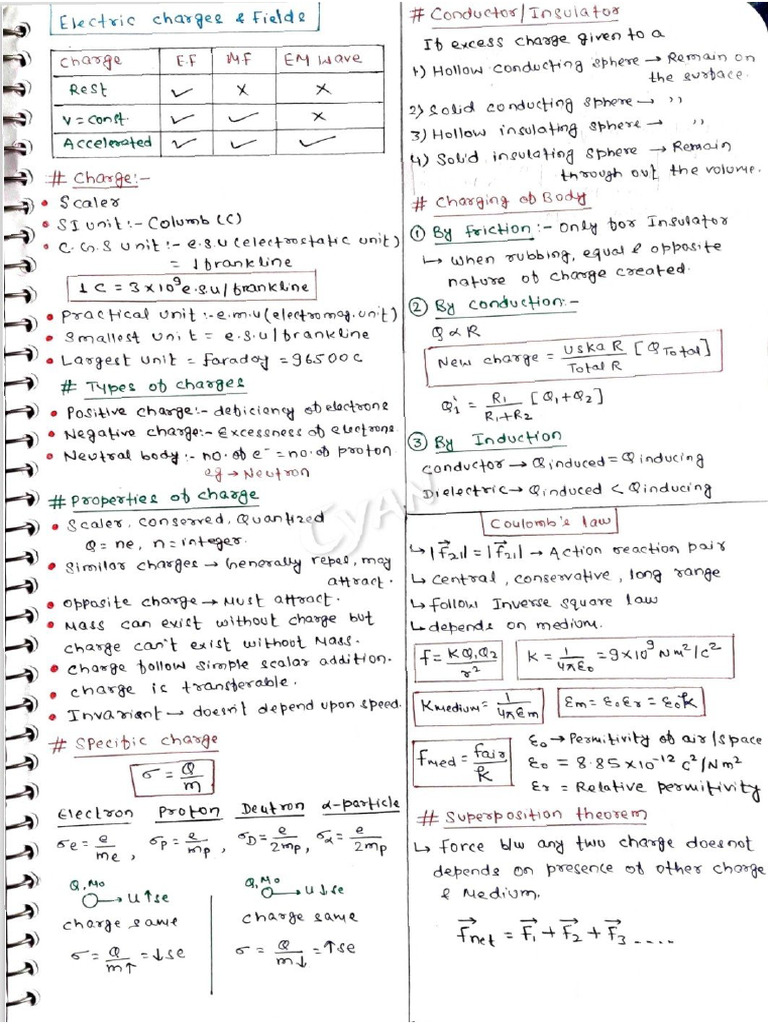 Electric charges & Fields
Charge E.F M.F EM wave
Rest ✓ × ×
v = const. ✓ ✓ ×
Accelerated ✓ ✓ ✓
# Charge:-
• Scaler
• SI unit :- Columb (C)
• C.G.S unit :- e.s.u (electrostatic unit)
= 1 frankline
1 C = 3×10⁹ e.s.u/frankline
• Practical unit :- e.m.u (electromag. unit)
• Smallest unit = e.s.u/frankline
• Largest unit = faraday = 96500C
# Types of charges
• Positive charge:- deficiency of electrons
• Negative charge:- Excessness of electrons
• Neutral body :- no. of e⁻ = no. of proton
eg → Neutron
# Properties of charge
• Scaler, conserved, Quantized
Q = ne, n = integer.
• Similar charges → Generally repes, may
attract.
• Opposite charge → Must attract.
• Mass can exist without charge but
charge can't exist without Mass.
• Charge follow simple scalar addition.
• charge is transferable.
• Invariant → doesn't depend upon speed.
# Specific charge
σ = Q/m
Electron Proton Deutron α-particle
σe = e/me, σp = e/mp, σD = e/2mp, σα = e/2mp
Q, Mo → U↑se
charge same
σ = Q/m↑ = ↓se
Q, Mo → U↓se
charge same
σ = Q/m↓ = ↑se
# Conductor/Insulator
If excess charge given to a
1) Hollow conducting sphere → Remain on
the surface.
2) Solid conducting sphere → ,,
3) Hollow insulating sphere → ,,
4) Solid insulating sphere → Remain
through out the volume.
# Charging of Body
① By friction :- only for Insulator
↳ when rubbing, equal & opposite
nature of charge created.
② By conduction:-
Q ∝ R
New charge = Uska R/Total R [QTotal]
Q₁' = R₁/R₁+R₂ [Q₁+Q₂]
③ By Induction
Conductor → Q induced = Q inducing
Dielectric → Q induced < Q inducing
Coulomb's law
↳ |F⃗₂₁| = |F⃗₂₁| → Action reaction pair
↳ central, conservative, long range
↳ follow Inverse square law
↳ depends on medium.
f = KQ₁Q₂/r² K = 1/4πε₀ = 9×10⁹ Nm²/c²
Kmedium = 1/4πεm εm = ε₀εr = ε₀k
fMed = fair/k
ε₀ → Permitivity of air/space
ε₀ = 8.85×10⁻¹² c²/Nm²
εr = Relative permitivity
# Superposition theorem
↳ force b/w any two charge doesnot
depends on presence of other charge
& Medium.
F⃗net = F⃗₁ + F⃗₂ + F⃗₃ ....
CYAN